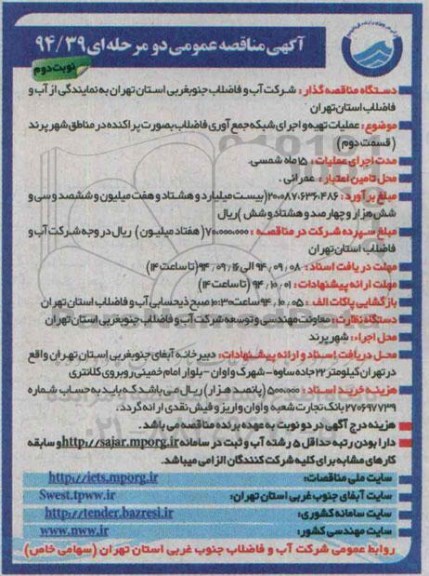 آگهی مناقصه عمومی دو مرحله ای ۹۴/۳۹
نوبت دوم
دستگاه مناقصه گذار : شرکت آب و فاضلاب جنوبغربی استان تهران به نمایندگی از آب و
فاضلاب استان تهران
موضوع : عملیات تهیه و اجرای شبکه جمع آوری فاضلاب بصورت پراکنده در مناطق شهر پرند
( قسمت دوم )
مدت اجرای عملیات : ۱۵ ماه شمسی.
محل تامین اعتبار : عمرانی .
مبلغ برآورد : ۲۰،۰۸۷،۶۳۶،۴۸۶ (بیست میلیارد و هشتاد و هفت میلیون و ششصد و سی و
شش هزار و چهارصد و هشتاد و شش ) ریال
مبلغ سپرده شرکت در مناقصه : ۷۰۰،۰۰۰،۰۰۰ ( هفتاد میلیون ) ریال در وجه شرکت آب و
فاضلاب استان تهران
مهلت دریافت اسناد : ۹۴،۰۹،۰۸ الی ۹۴،۰۹،۱۶ (تا ساعت ۱۴)
مهلت ارائه پیشنهادات : ۹۴،۱۰،۰۱ (تا ساعت ۱۴)
بازگشایی پاکات الف : ۹۴،۱۰،۰۵ ساعت ۱۰:۳۰ صبح ذیحسابی آب و فاضلاب استان تهران
دستگاه نظارت : معاونت مهندسی و توسعه شرکت آب و فاضلاب جنوبغربی استان تهران
محل اجراء : شهر پرند
محل دریافت اسناد و ارائه پیشنهادات : دبیرخانه آبفای جنوبغربی استان تهران واقع
در تهران کیلومتر ۲۲ جاده ساوه - شهرک واوان - بلوار امام خمینی روبروی کلانتری
هزینه خرید اسناد : ۵۰۰،۰۰۰ (پانصد هزار) ریال می باشد که باید به حساب شماره
۲۷۰۶۹۷۷۳۹ بانک تجارت شعبه واوان واریز و فیش نقدی ارائه گردد.
هزینه درج آگهی در دو نوبت به عهده برنده مناقصه می باشد .
دارا بودن رتبه حداقل ۵ رشته آب و ثبت در سامانه http://sajar.mporg.ir و سابقه
کارهای مشابه برای کلیه شرکت کنندگان الزامی میباشد.
سایت ملی مناقصات: http://iets.mporg.ir
سایت آبفای جنوب غربی استان تهران: Swest.tpww.ir
سایت سامانه کشوری: http://tender.bazresi.ir
سایت مهندسی کشور: www.nww.ir
روابط عمومی شرکت آب و فاضلاب جنوب غربی استان تهران (سهامی خاص)